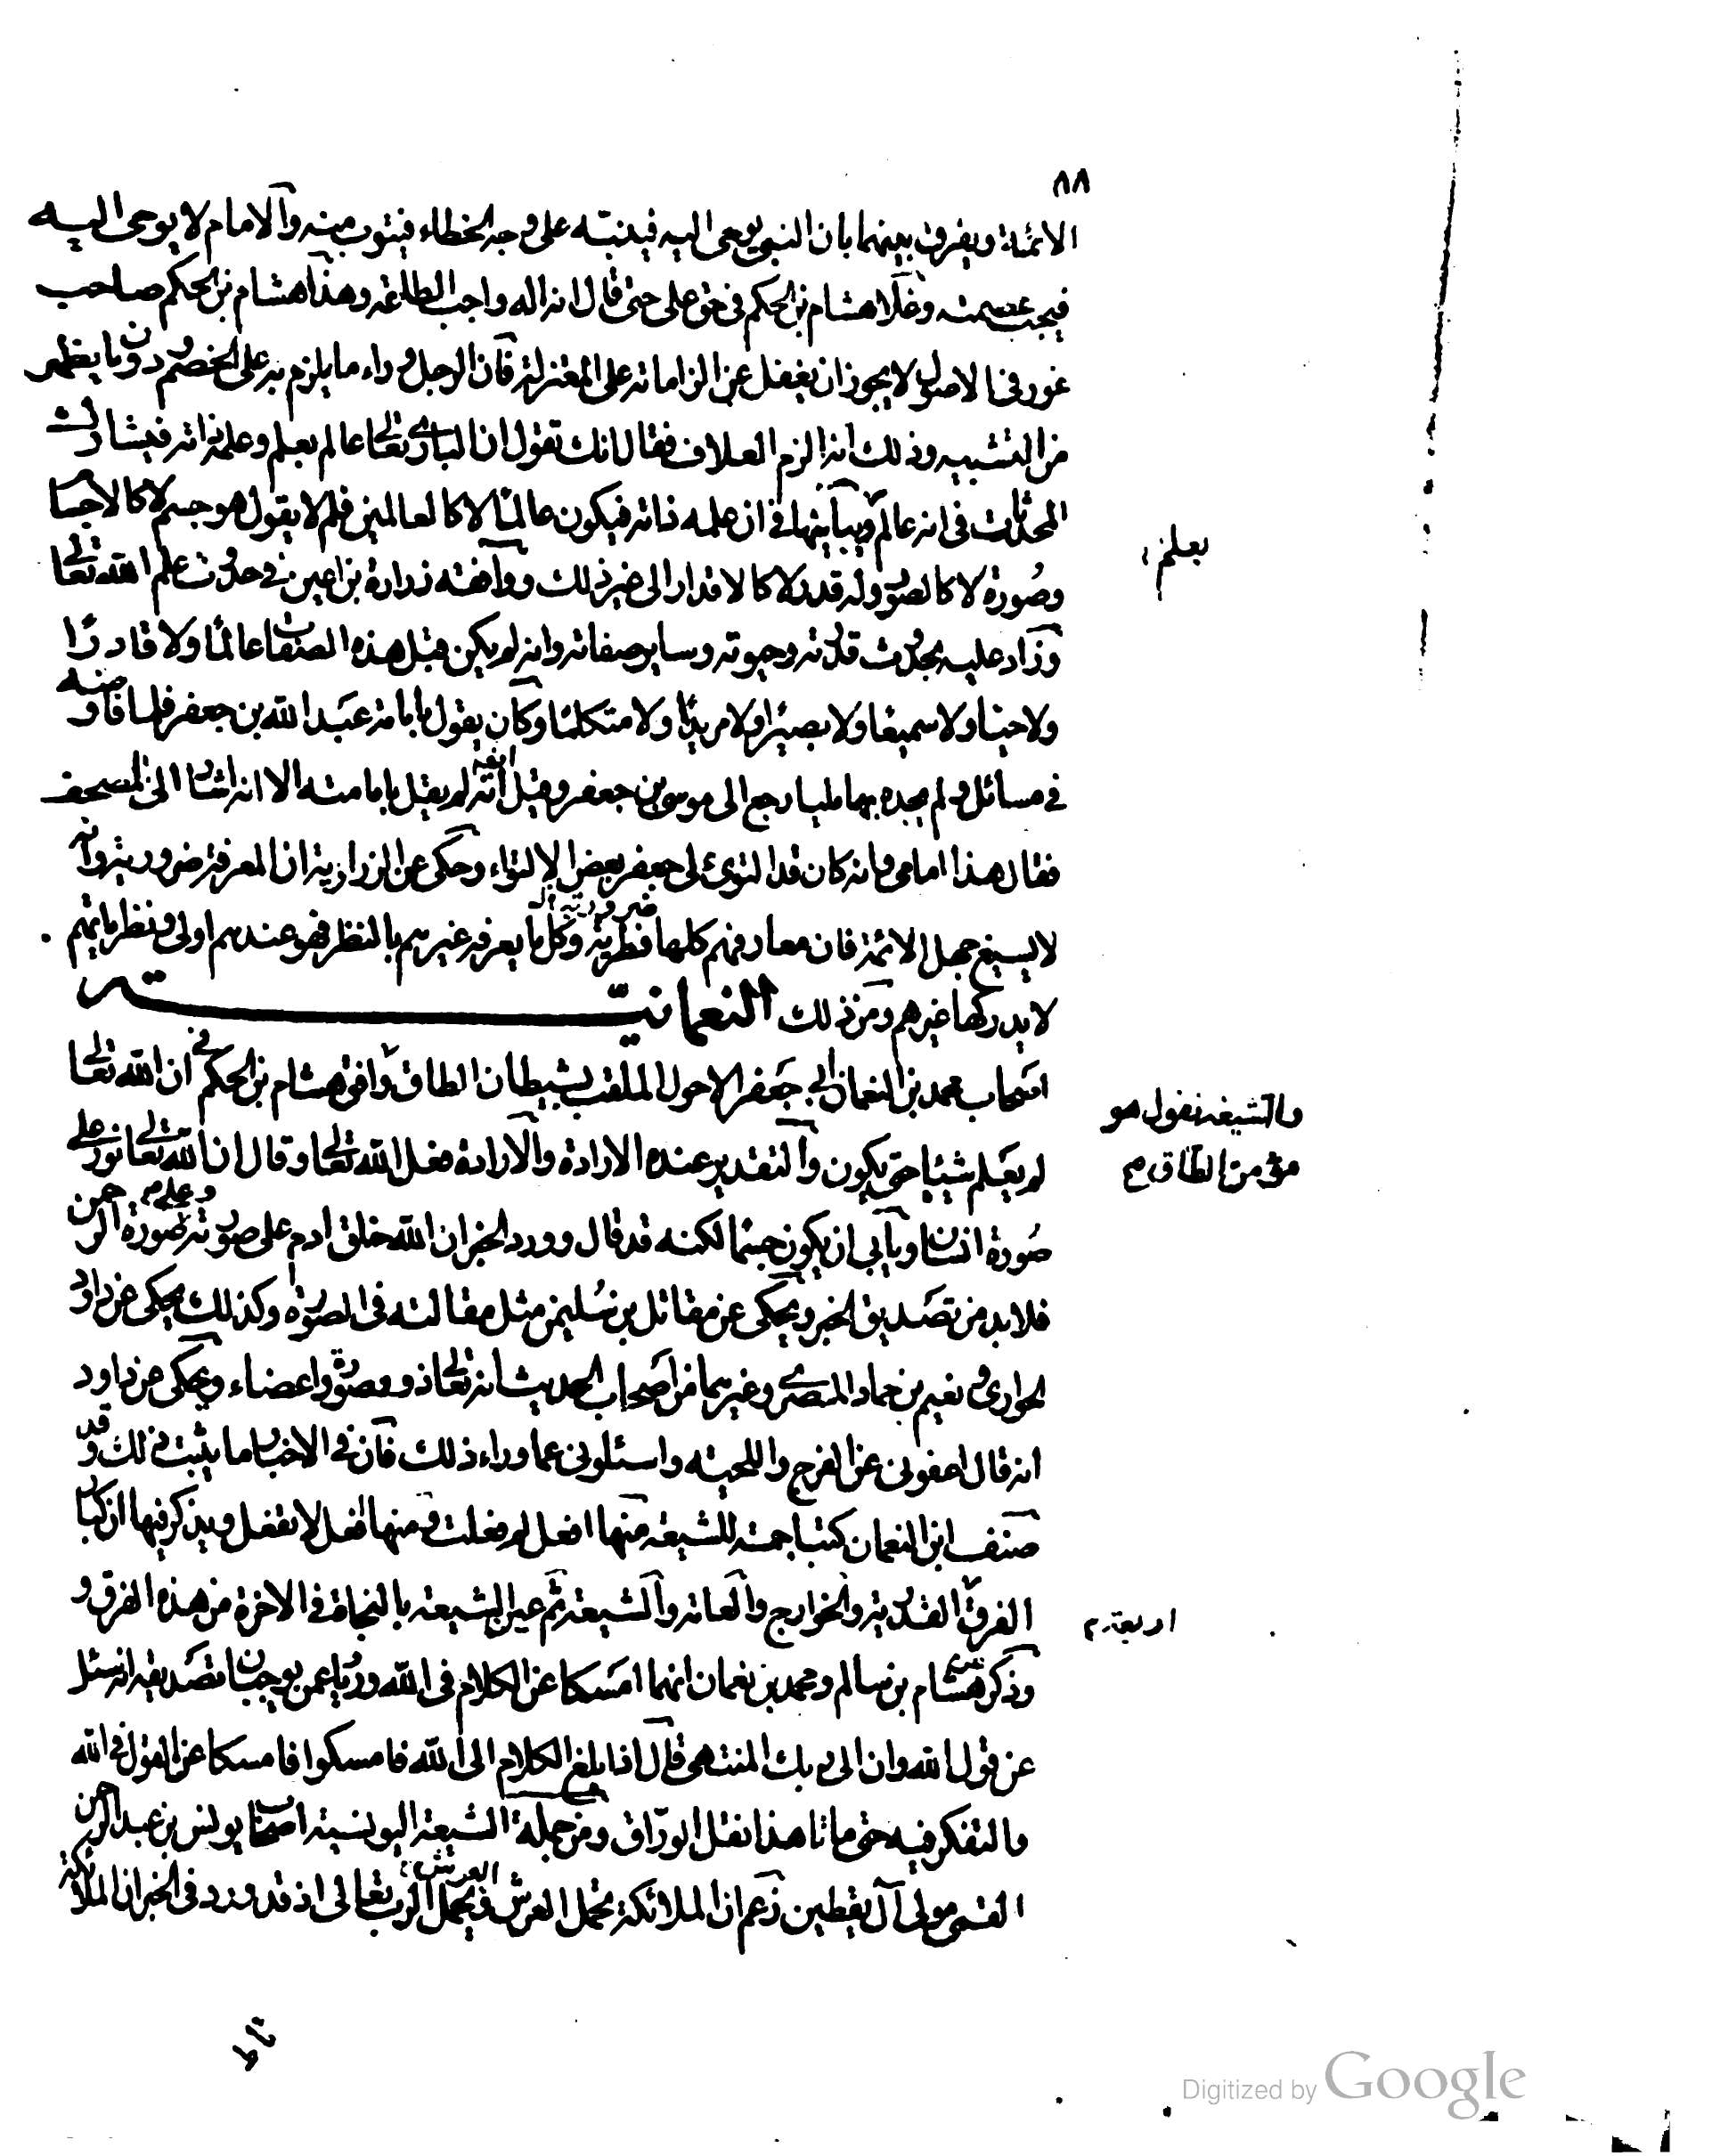 ٨٨
الائمة ويفرق بينهما بان النبي يوحى اليه فينبه على وجه الخطاء فيتوب منه والامام لا يوحى اليه
فيجب عصمته وغلا هشام بن الحكم في حق على حتى قال انه اله واجب الطاعة وهذا هشام بن الحكم صاحب
غور في الاصول لا يجوز ان يغفل عن الزاماته على المعتزلة فان الرجل وراء ما يلزم به على الخصم ودون ما يظهر
من التشبيه وذلك انه الزم العلاف فقال انك تقول ان البارى تعالى عالم بعلم وعلمه ذاته فيشارك
المحدثات في انه عالم ويباينها في ان علمه ذاته فيكون عالما لا كالعالمين فلم لا يقول هو جسم لا كالاجسام
بعلم
وصورة لا كالصور وله قدر لا كالاقدار الى غير ذلك ووافقه زرارة بن اعين في حدوث علم الله تعالى
وزاد عليه بحدوث قدرته وحيوته وساير صفاته وانه لم يكن قبل هذه الصفات عالما ولا قادرا
ولا حيا ولا سميعا ولا بصيرا ولا مريدا ولا متكلما وكان يقول بامامة عبد الله بن جعفر فلما فاوضه
في مسائل ولم يجده بها مليا رجع الى موسى بن جعفر وقيل ايضا انه لم يقل بامامته الا انه اشار الى المصحف
فقال هذا امامى وانه كان قد التوى على جعفر بعض الالتواء وحكى عن الزرارية ان المعرفة ضرورية وانه
لا يسيغ جهل الائمة فان معارفهم كلها فطرية ضرورية وكل ما يعرفه غيرهم بالنظر فهو عندهم اولى ونظرياتهم
لا يدركها غيرهم ومن ذلك النعمانية
اصحاب محمد بن النعمان ابى جعفر الاحول الملقب بشيطان الطاق وافق هشام بن الحكم في ان الله تعالى
والشيعة تقول هو
مؤمن الطاق صح
لم يعلم شيئا حتى يكون والتقدير عنده الارادة والارادة فعل الله تعالى وقال ان الله تعالى نور على
صورة انسان ويأبى ان يكون جسما لكنه قد قال وورد الخبر ان الله خلق ادم على صورته وعلى صورة الرحمن
فلا بد من تصديق الخبر ويحكى عن مقاتل بن سليمن مثل مقالته في الصورة وكذلك يحكى عن داود
الحوارى ونعيم بن حماد المصرى وغيرهما من اصحاب الحديث انه تعالى ذو صورة واعضاء ويحكى عن داود
انه قال اعفونى عن الفرج واللحية واسئلونى عما وراء ذلك فان في الاخبار ما يثبت ذلك وقد
صنف ابن النعمان كتبا جمة للشيعة منها افعل لم فعلت ومنها افعل لا تفعل ويذكر فيها ان كبار
الفرق القدرية والخوارج والعامة والشيعة ثم عين الشيعة بالنجاة في الاخرة من هذه الفرق و
اربعة م
وذكر عن هشام بن سالم ومحمد بن نعمان انهما امسكا عن الكلام في الله ورويا عمن يوجبان تصديقه انه سئل
عن قول الله وان الى ربك المنتهى قال اذا بلغ الكلام الى الله فامسكوا فامسكا عن القول في الله
والتفكر فيه حتى ماتا هذا نقل الوراق ومن جملة الشيعة اليونسية اصحاب يونس بن عبد الرحمن
القمى مولى آل يقطين زعم ان الملائكة تحمل العرش والعرش يحمل الرب تعالى اذ قد ورد في الخبر ان الملائكة
تاط
Digitized by Google